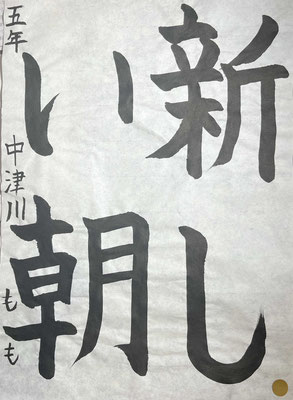 新し
い朝
五年 中津川もも